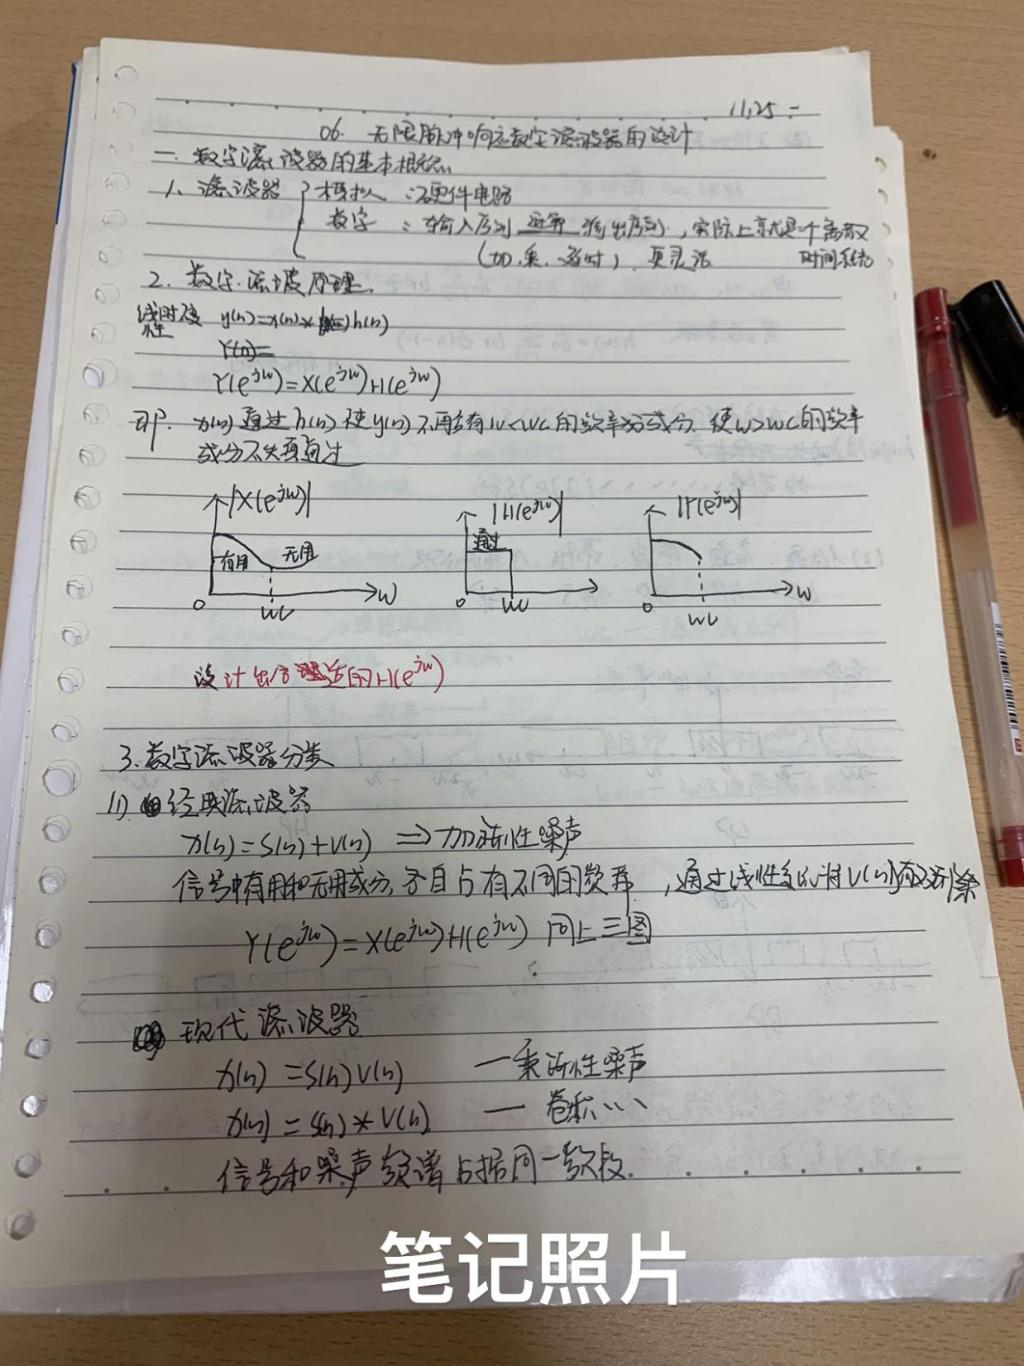 11.25 二
06. 无限脉冲响应数字滤波器的设计
一. 数字滤波器的基本概念
1. 滤波器 模拟 : 硬件电路
数字 : 输入序列 运算 输出序列, 实际上就是一个离散
(加、乘、延时), 更灵活 时间系统
2. 数字滤波原理.
线性时 y(n)=x(n)* h(n)
Y(n)=
Y(e^jw)=X(e^jw)H(e^jw)
即. x(n)通过h(n)使y(n)不再含有w<wc的频率成分, 使w>wc的频率
成分不失真通过
|X(e^jw)| |H(e^jw)| |Y(e^jw)|
有用 无用 通过
0 wc w 0 wc 0 wc w
设计出合适的H(e^jw)
3. 数字滤波器分类
(1) 经典滤波器
x(n)=s(n)+v(n) ⇒ 加法性噪声
信号中有用和无用成分各自占有不同的频带, 通过线性系统将v(n)有效滤除
Y(e^jw)=X(e^jw)H(e^jw) 同上三图
现代滤波器
x(n)=s(n)v(n) — 乘法性噪声
x(n)=s(n)*v(n) — 卷积、、、
信号和噪声频谱占据同一频段.
笔记照片